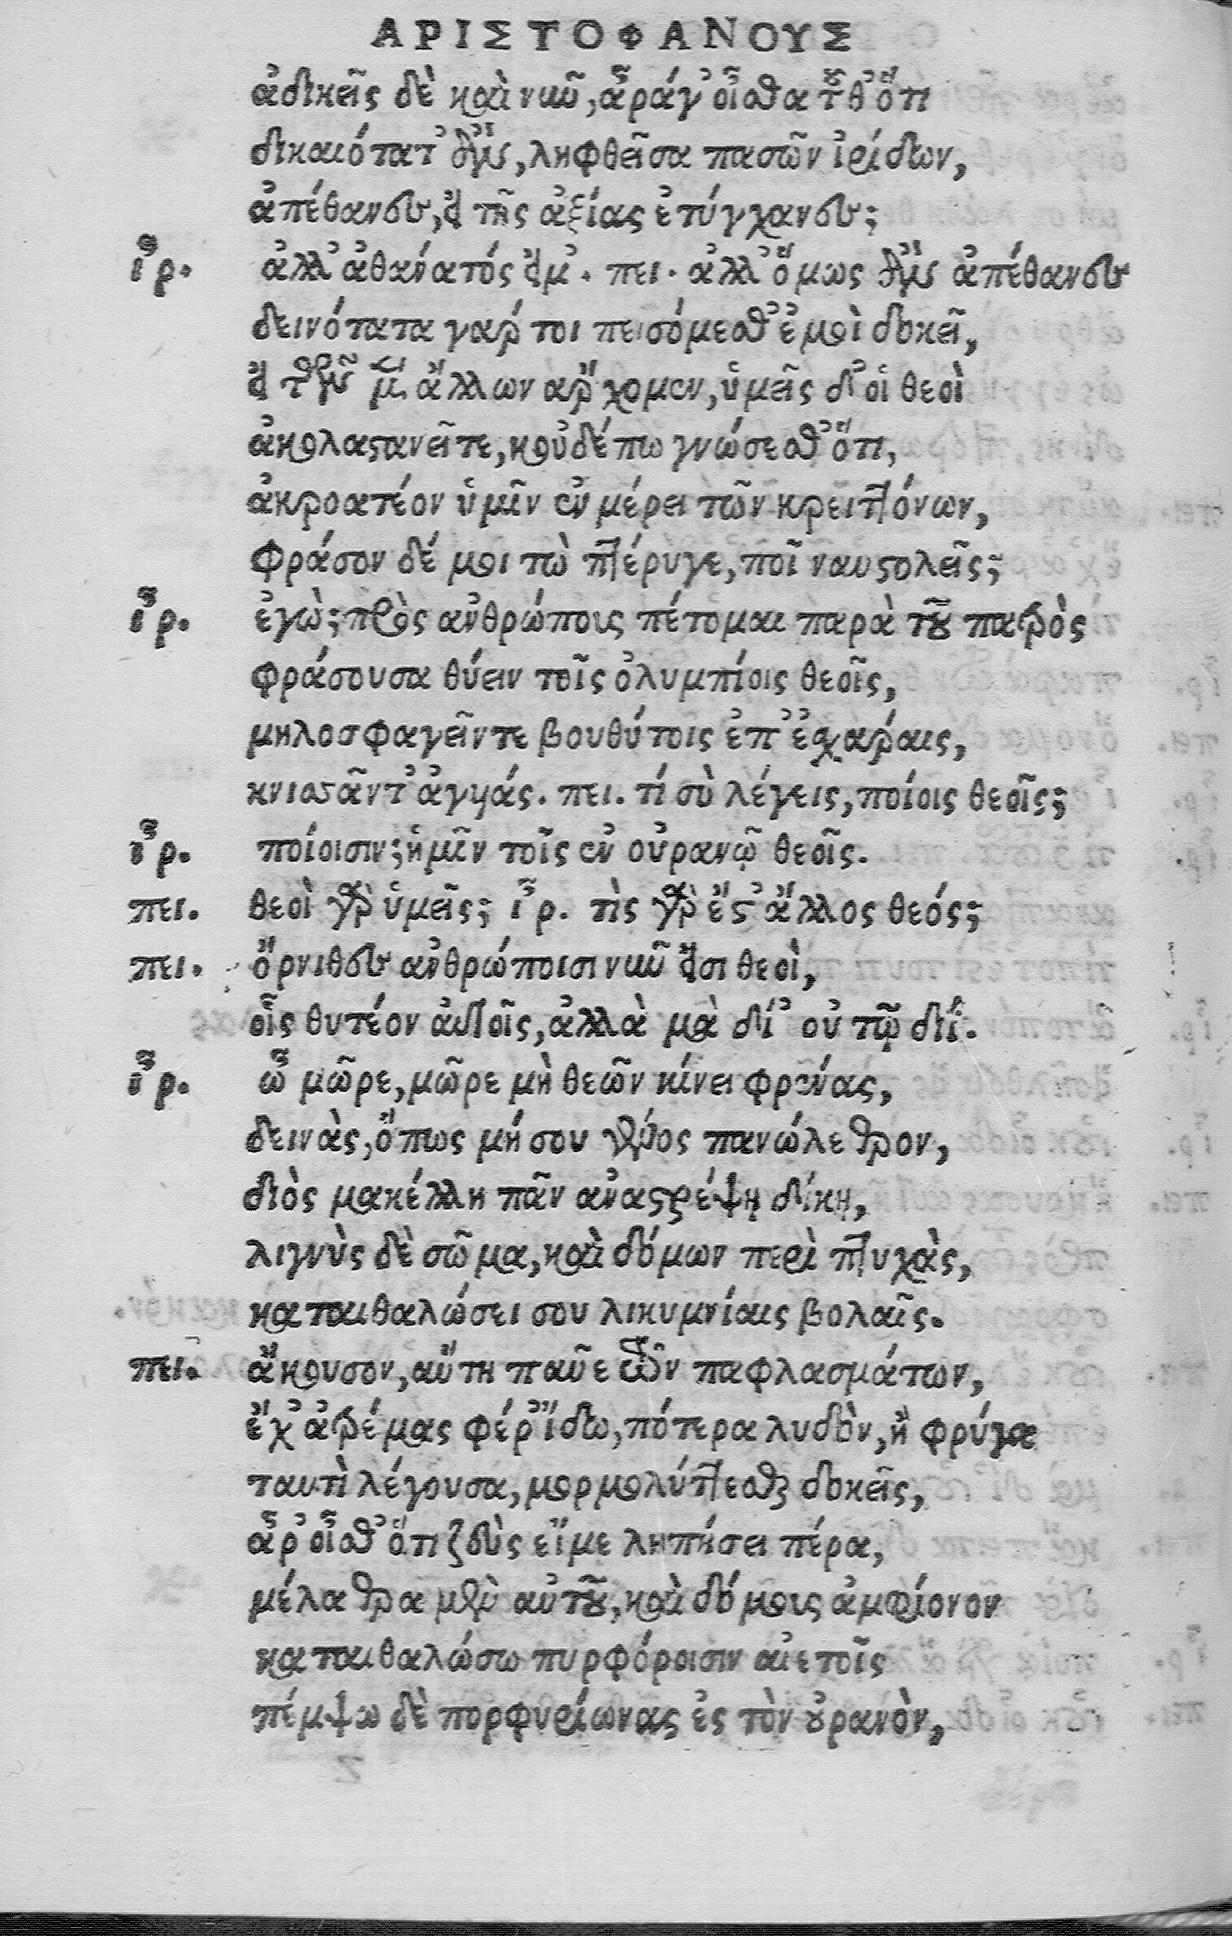 ΑΡΙΣΤΟΦΑΝΟΥΣ
ἀδικεῖς δὲ καὶ νυῦ, ἆράγ' οἶσθα τοῦθ' ὅτι
δικαιότατ' ἂν, ληφθεῖσα πασῶν ἰρίδων,
ἀπέθανες, εἰ τῆς ἀξίας ἐτύγχανες;
ἶρ. ἀλλ' ἀθάνατός εἰμ'. πει. ἀλλ' ὅμως ἂν ἀπέθανες
δεινότατα γάρ τοι πεισόμεσθ' ἐμοὶ δοκεῖ,
εἰ τῶν μὲν ἄλλων ἄρχομεν, ὑμεῖς δ' οἱ θεοὶ
ἀκολαστανεῖτε, κοὐδέπω γνώσεσθ' ὅτι,
ἀκροατέον ὑμῖν ἐν μέρει τῶν κρειττόνων,
φράσον δέ μοι τὼ πτέρυγε, ποῖ ναυστολεῖς;
ἶρ. ἐγὼ; πρὸς ἀνθρώπους πέτομαι παρὰ τοῦ πατρὸς
φράσουσα θύειν τοῖς ὀλυμπίοις θεοῖς,
μηλοσφαγεῖν τε βουθύτοις ἐπ' ἐσχάραις,
κνισᾶν τ' ἀγυιάς. πει. τί σὺ λέγεις, ποίοις θεοῖς;
ἶρ. ποίοισιν; ἡμῖν τοῖς ἐν οὐρανῷ θεοῖς.
πει. θεοὶ γὰρ ὑμεῖς; ἶρ. τὶς γὰρ ἔστ' ἄλλος θεός;
πει. ὄρνιθες ἀνθρώποισι νυῦ εἰσι θεοὶ,
οἷς θυτέον αὐτοῖς, ἀλλὰ μὰ δί' οὐ τῷ διΐ.
ἶρ. ὦ μῶρε, μῶρε μὴ θεῶν κίνει φρένας,
δεινὰς, ὅπως μή σου γένος πανώλεθρον,
διὸς μακέλλη πᾶν ἀναστρέψη δίκη,
λιγνὺς δὲ σῶμα, καὶ δόμων περὶ πτυχὰς,
καταιθαλώσει σου λικυμνίαις βολαῖς.
πει. ἄκουσον, αὕτη παῦε τῶν παφλασμάτων,
ἔχ' ἀτρέμας φέρ' ἴδω, πότερα λυδὸν, ἢ φρύγα
ταυτὶ λέγουσα, μορμολύττεσθαι δοκεῖς,
ἆρ' οἶσθ' ὅτι ζεὺς εἴ με λυπήσει πέρα,
μέλαθρα μὲν αὐτοῦ, καὶ δόμους ἀμφίονον
καταιθαλώσω πυρφόροισιν αἰετοῖς
πέμψω δὲ πορφυρίωνας ἐς τὸν οὐρανὸν,